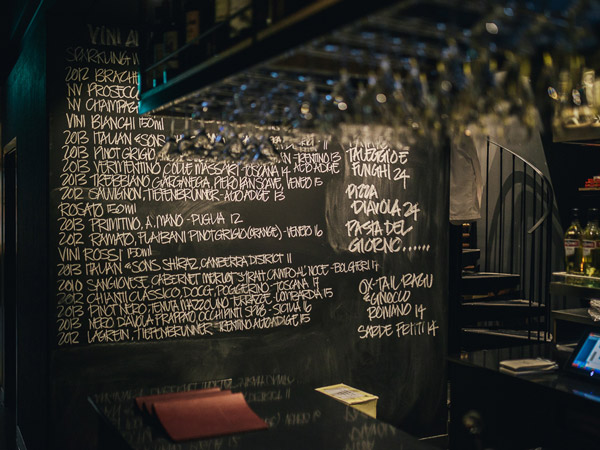 VINI AL
SPARKLING 1
2012 BRACHE
NV PROSECCO
NV CHAMPAG
VINI BIANCHI 150ml
2013 ITALIAN &SONS
2013 PINOT GRIGIO TRENTINO 13
2013 VERMENTINO COLLE MASSARI TOSCANA 14 ALTO ADIGE
2013 TREBBIANO GARGANEGA, PIEROPAN SOAVE, VENETO 15
2012 SAUVIGNON, TIEFENBRUNNER - ALTO ADIGE 13
ROSATO 150ml
2013 PRIMITIVO, A. MANO - PUGLIA 12
2012 RAMATO, PINOT GRIGIO (ORANGE) - VENETO 16
VINI ROSSI 150ml
2013 ITALIAN &SONS SHIRAZ, CANBERRA DISTRICT 11
2010 SANGIOVESE, CABERNET MERLOT SYRAH CAMPO AL NOCE - BOLGHERI 17
2012 CHIANTI CLASSICO, DOLCE, POGGERINO - TOSCANA 17
2013 PINOT NERO, TENUTA MAZZOLINO TERRAZZE, LOMBARDIA 15
2013 NERO D'AVOLA FRAPPATO OCCHIPINTI SP68 - SICILIA 16
2012 LAGREIN, TIEFENBRUNNER - TRENTINO ALTO ADIGE 15
TALEGGIO E
FUNGHI 24
PIZZA
DIAVOLA 24
PASTA DEL
GIORNO......
OX-TAIL RAGU
&GNOCCO
ROMANO 14
SARDE FRITTI 14